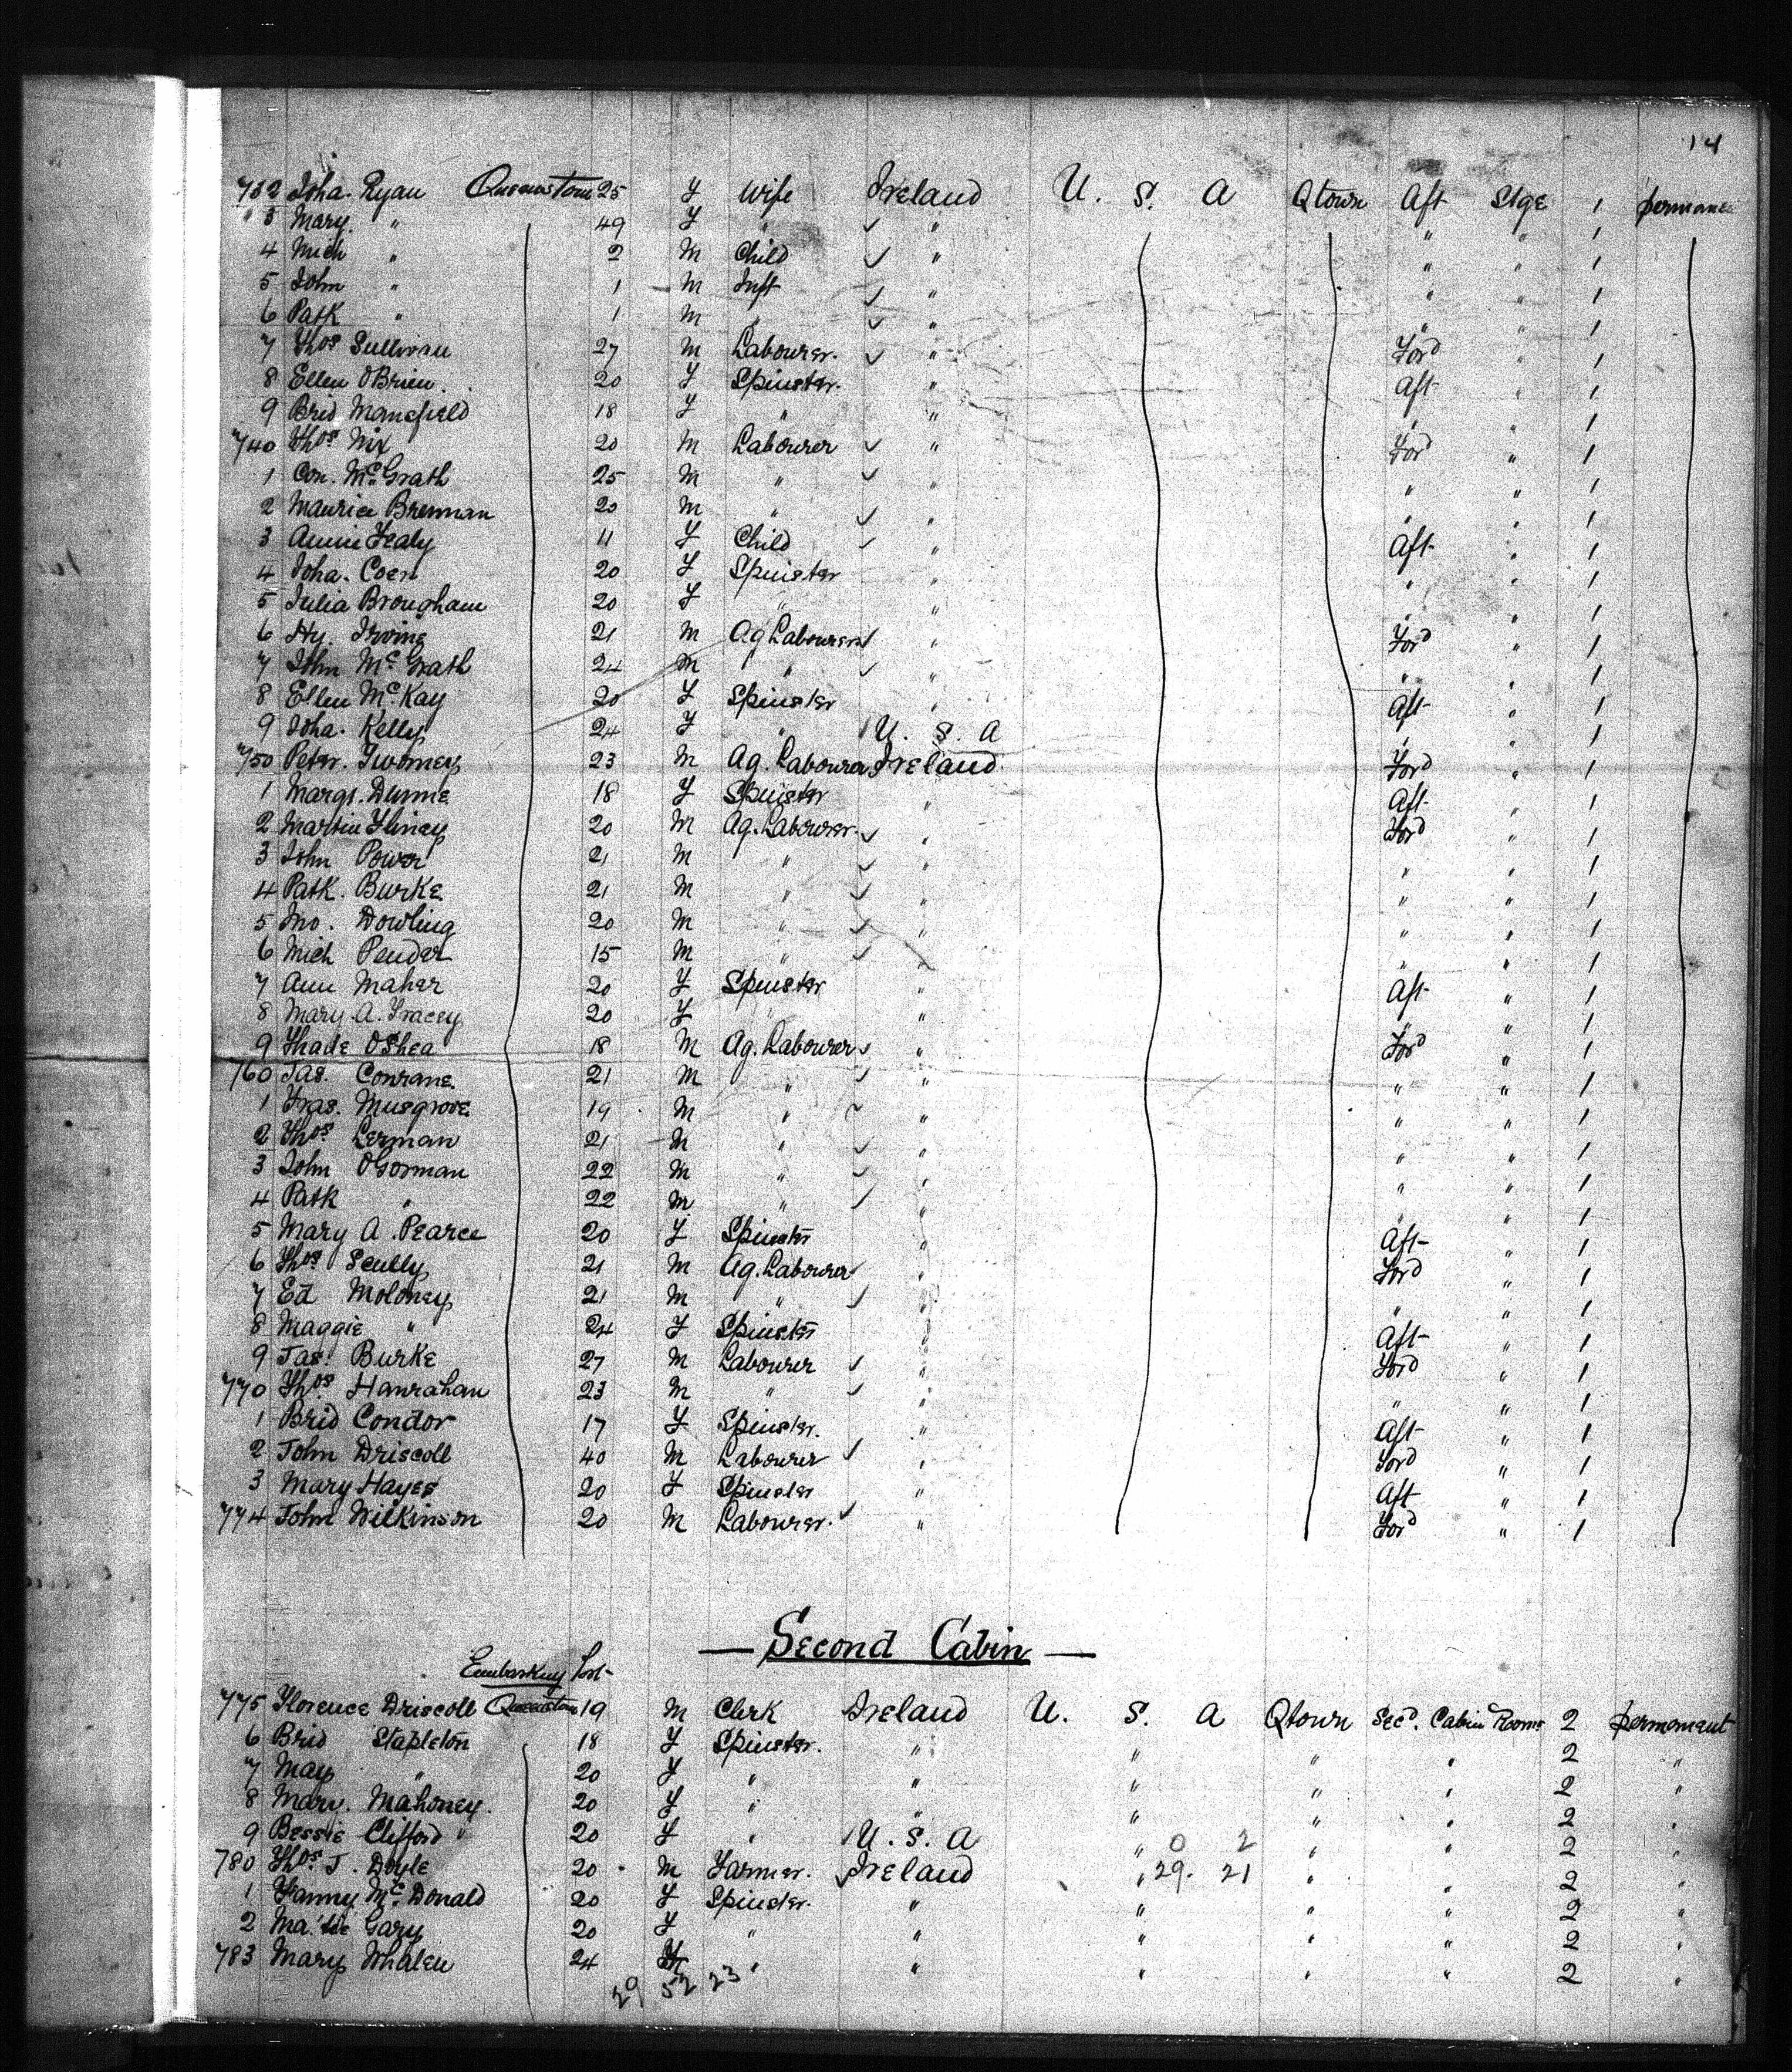 14
732 Joha. Ryan Queenstown 25 F Wife Ireland U. S. A Qtown Aft Stge 1
3 Mary. " 49 F " " " " 1
4 Mich " 2 M Child " " " 1
5 John " 1 M Inft " " " 1
6 Patk " 1 M " " " " 1
7 Thos Sullivan 27 M Labourer. " Ford " 1
8 Ellen OBrien. 20 F Spinster. " Aft " 1
9 Brid Mansfield 18 F " " " " 1
740 Thos Nix 20 M Labourer " Ford " 1
1 Con. McGrath 25 M " " " " 1
2 Maurice Brennan 20 M " " " " 1
3 Annie Healy 11 F Child " Aft " 1
4 Joha. Coen 20 F Spinster " " " 1
5 Julia Brougham 20 F " " " " 1
6 Hy. Irvine 21 M Ag Labourer " Ford " 1
7 John McGrath 24 M " " " " 1
8 Ellen McKay 20 F Spinster " Aft " 1
9 Joha. Kelly 24 F " U. S. A " " 1
750 Peter. Twomey 23 M Ag. Labourer Ireland Ford " 1
1 Margt. Dunne 18 F Spinster " Aft " 1
2 Martin 20 M Ag. Labourer. " Ford " 1
3 John Power 21 M " " " " 1
4 Patk. Burke 21 M " " " " 1
5 Jno. Dowling 20 M " " " " 1
6 Mich Pender 15 M " " " " 1
7 Ann Maher 20 F Spinster " Aft " 1
8 Mary A. Tracey 20 F " " " " 1
9 Thade OShea 18 M Ag. Labourer " Ford " 1
760 Jas. Conrane 21 M " " " " 1
1 Fras. Musgrove 19 M " " " " 1
2 Thos Lerman 21 M " " " " 1
3 John OGorman 22 M " " " " 1
4 Patk " 22 M " " " " 1
5 Mary A. Pearce 20 F Spinster " Aft " 1
6 Thos Scully 21 M Ag. Labourer " Ford " 1
7 Ed Moloney 21 M " " " " 1
8 Maggie " 24 F Spinster " Aft " 1
9 Jas. Burke 27 M Labourer " Ford " 1
770 Thos Hanrahan 23 M " " " " 1
1 Brid Condor 17 F Spinster. " Aft " 1
2 John Driscoll 40 M Labourer " Ford " 1
3 Mary Hayes 20 F Spinster " Aft " 1
774 John Wilkinson 20 M Labourer. " Ford " 1
— Second Cabin —
Embarking Port
775 Florence Driscoll Queenstown 19 M Clerk Ireland U. S. A Qtown Secd. Cabin Rooms 2 permanent
6 Brid Stapleton 18 F Spinster. " " " " 2 "
7 May " 20 F " " " " " 2 "
8 Mary. Mahoney. 20 F " " " " " 2 "
9 Bessie Clifford 20 F " U. S. A " 0 2 " " 2 "
780 Thos. J. Doyle 20 M Farmer. Ireland " 29. 21 " " 2 "
1 Fanny McDonald 20 F Spinster. " " " " 2 "
2 Gary 20 F " " " " " 2 "
783 Mary Whalen 24 " " " " " 2 "
29 52 23